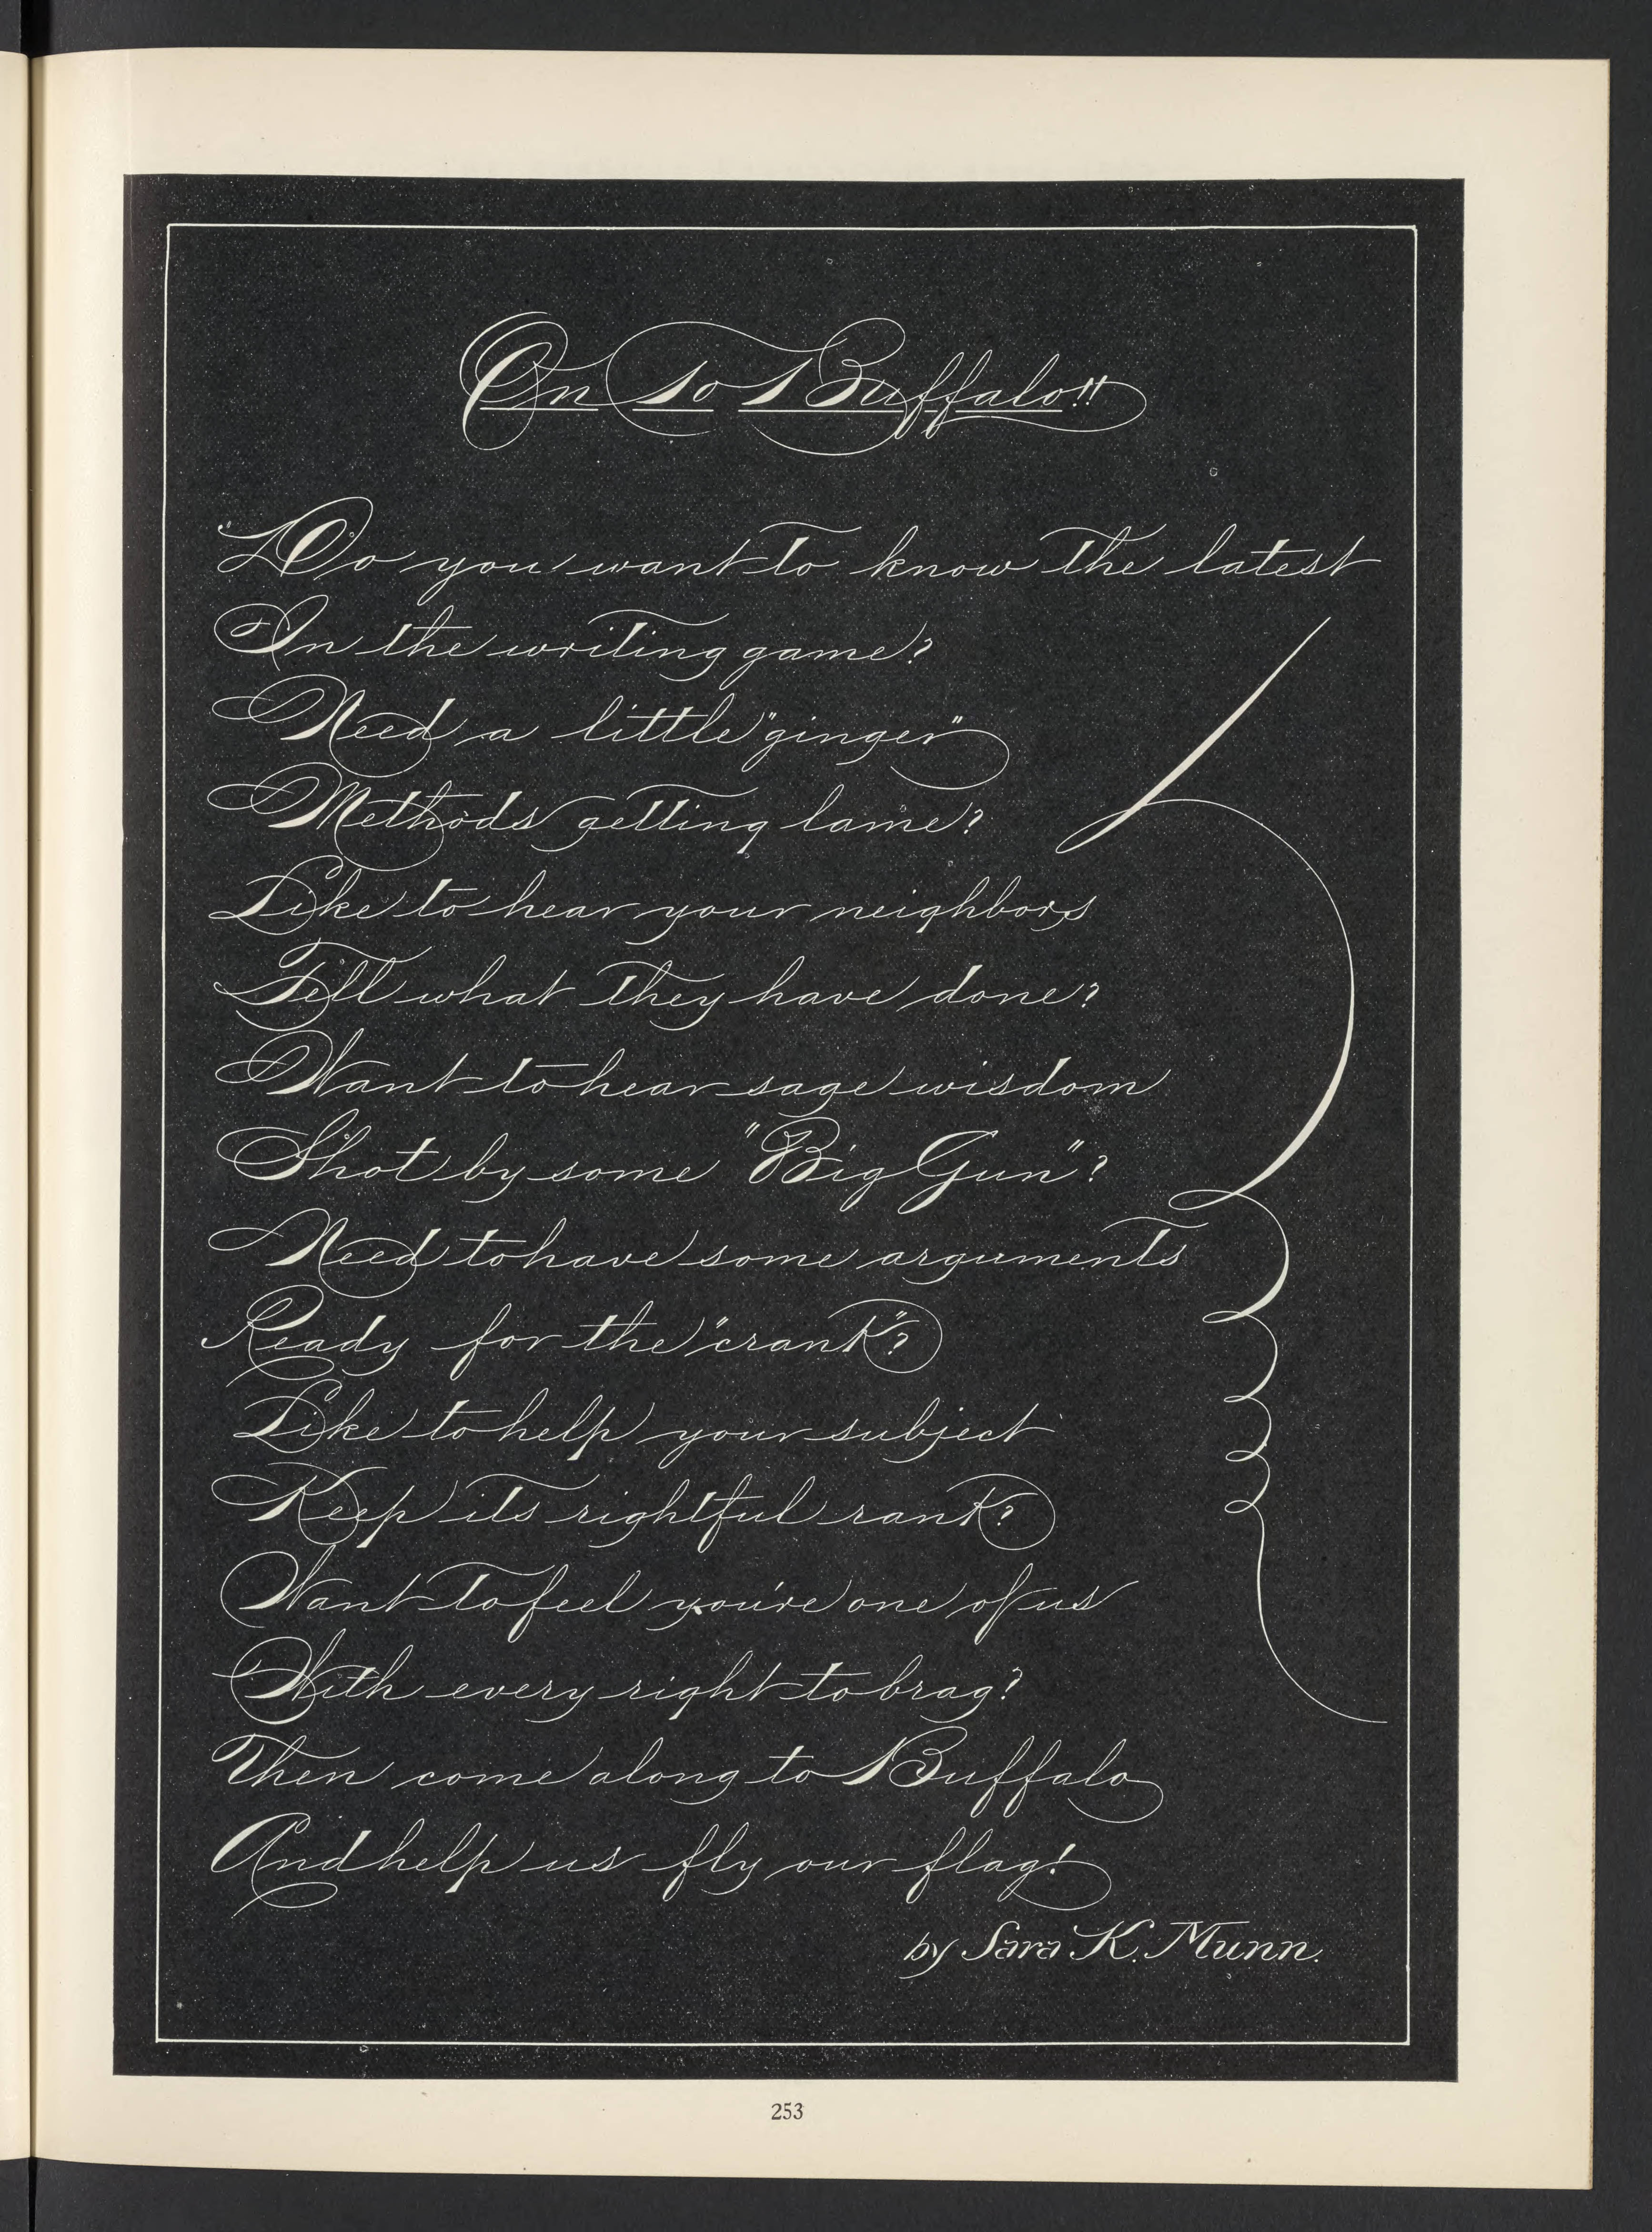 On to Buffalo!!
"Do you want to know the latest
In the writing game?
Need a little "ginger"
Methods getting lame?
Like to hear your neighbors
Tell what they have done?
Want to hear sage wisdom
Shot by some "Big Gun"?
Need to have some arguments
Ready for the "crank"?
Like to help your subject
Keep its rightful rank?
Want to feel you're one of us
With every right to brag?
Then come along to Buffalo
And help us fly our flag!
by Sara K. Munn.
253